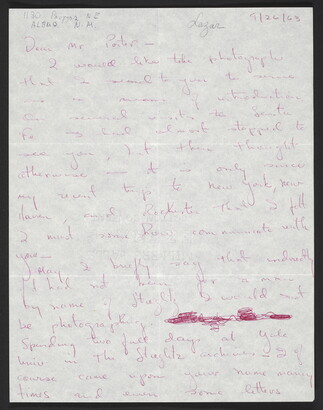 ALBUQ N.M. Lazar 9/26/63
Dear Mr. Porter —
I would like the photographs
that I send to you to serve
as a means of introduction
On several visits to Santa
Fe we had almost stopped to
see you, but then thought
otherwise — it is only since
my recent trip to New York, New
Haven, and Rochester that I felt
I must some how communicate with
you —
May I briefly say that indirectly
if had not being for a man
by name of Stieglitz I would not
be photographing
Spending two full days at Yale
Univ — The Stieglitz archives — I of
course came upon your name many
times and even some letters